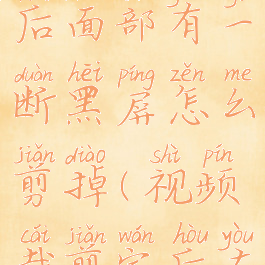 后面部有一
duàn hēi píng zěn me
断黑屏怎么
jiǎn diào shì pín
剪掉(视频
cái jiǎn wán hòu yòu
裁剪完后右